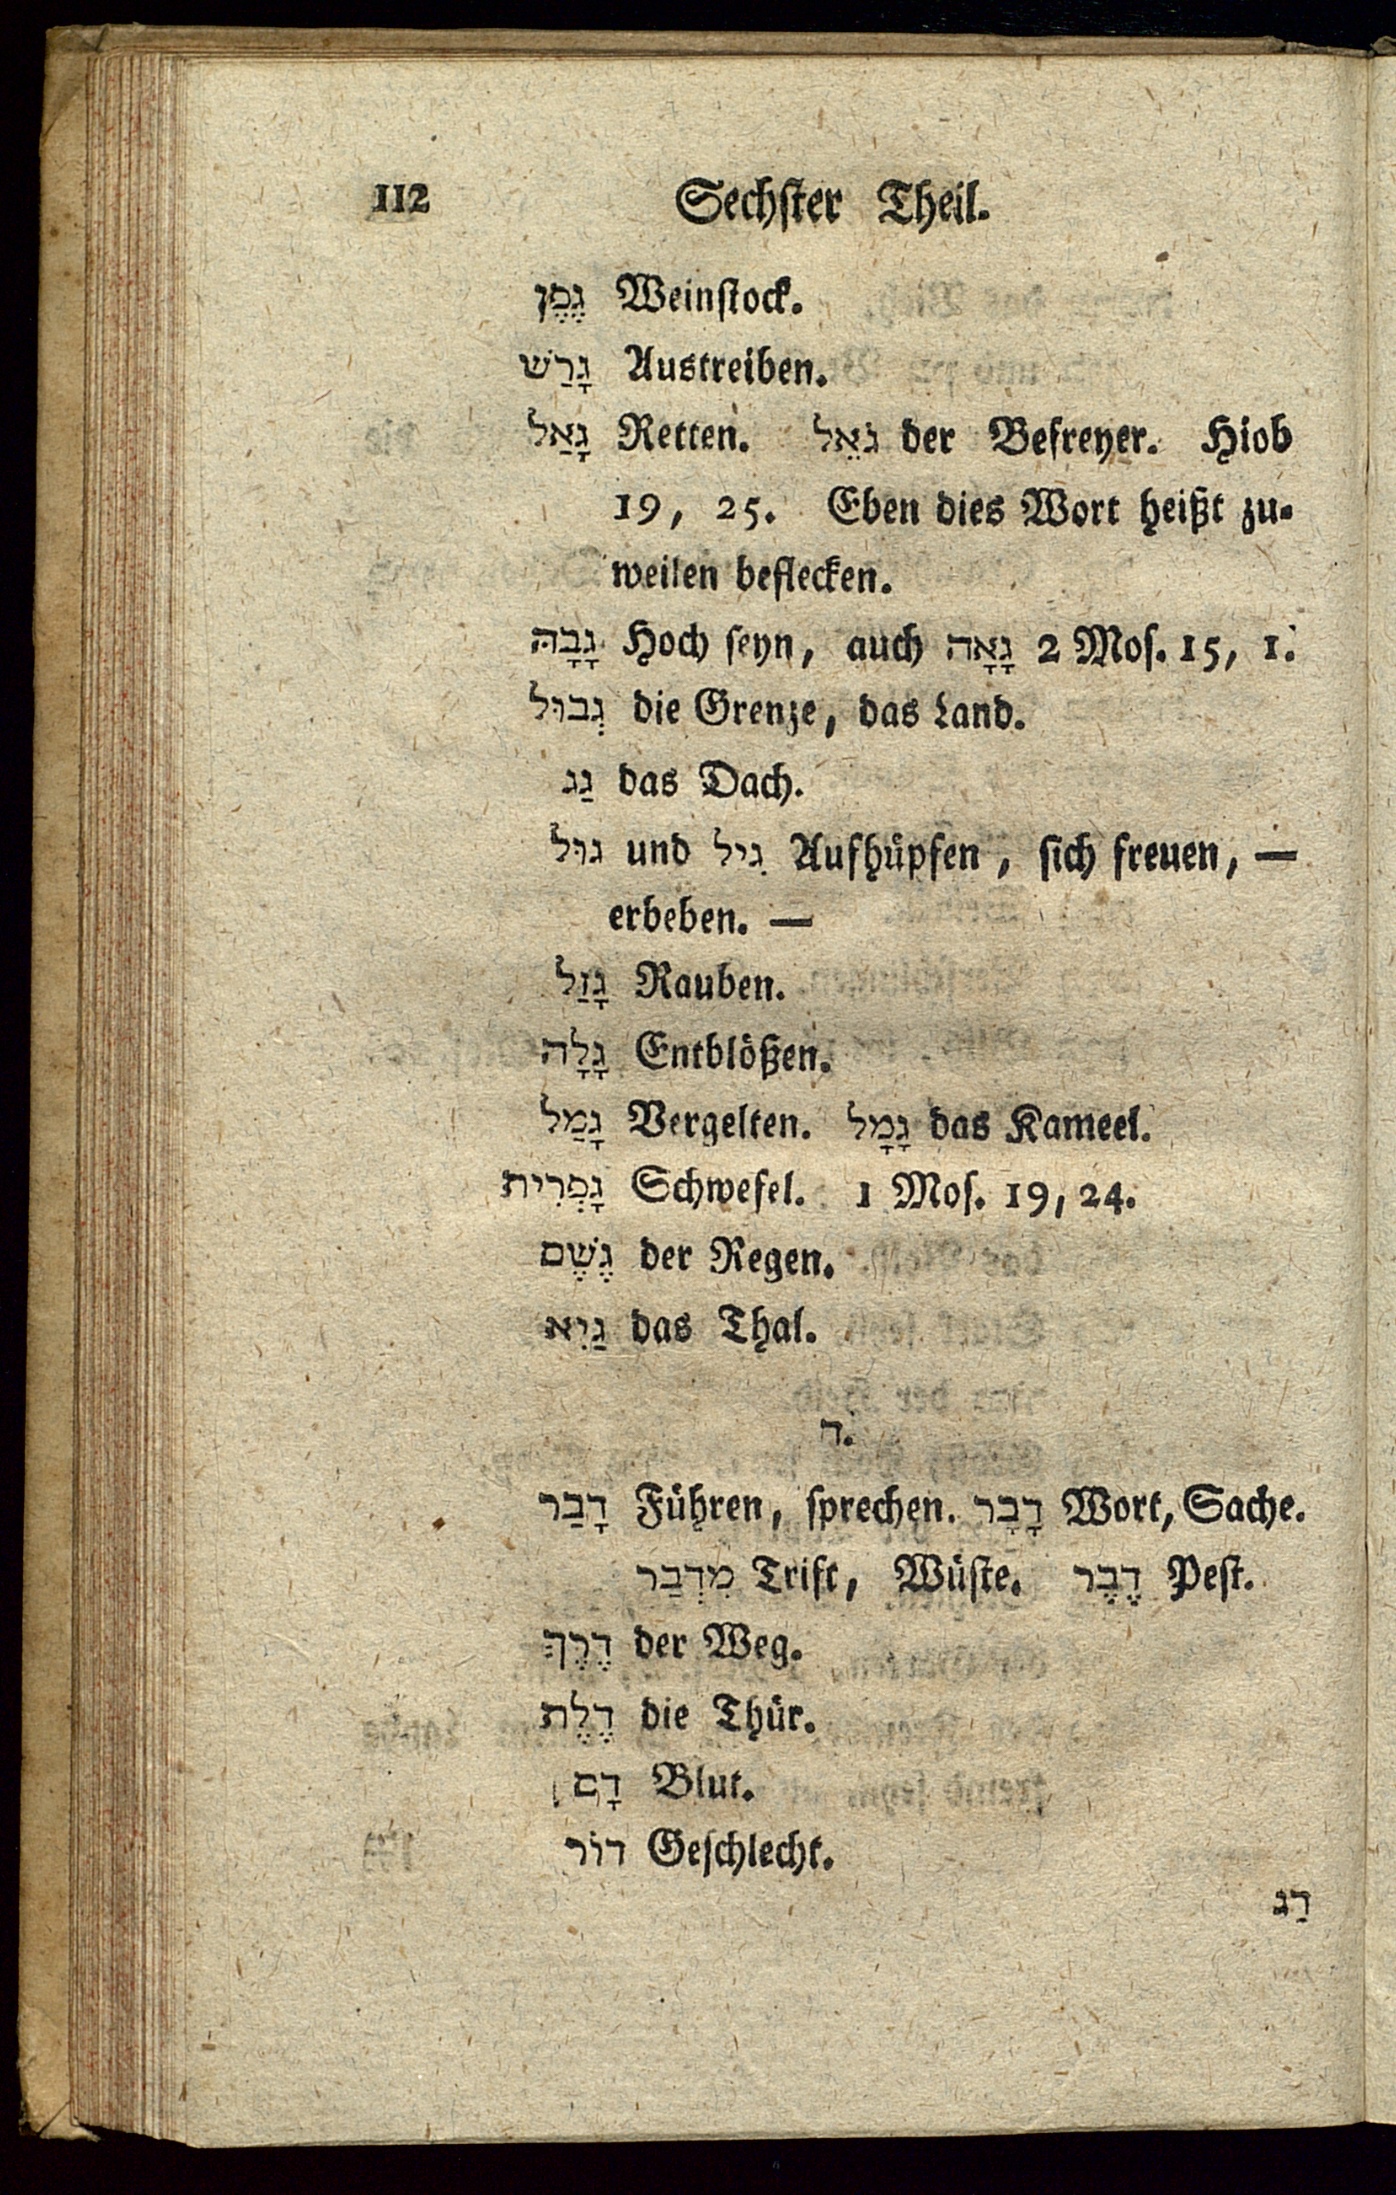 112 Sechster Theil.
גֶפֶן Weinstock.
גָרַשׁ Austreiben.
גָאַל Retten. גֹאֵל der Befreyer. Hiob
19, 25. Eben dies Wort heißt zu-
weilen beflecken.
גָבָהּ Hoch seyn, auch גָאָה 2 Mos. 15, 1.
גְבוּל die Grenze, das Land.
גַג das Dach.
גוּל und גִיל Aufhüpfen, sich freuen, —
erbeben. —
גָזַל Rauben.
גָלָה Entblößen.
גָמַל Vergelten. גָמָל das Kameel.
גָפְרִית Schwefel. 1 Mos. 19, 24.
גֶשֶׁם der Regen.
גַיִא das Thal.
ד.
דָבַר Führen, sprechen. דָבָר Wort, Sache.
מִדְבַר Trift, Wüste. דֶבֶר Pest.
דֶרֶךְ der Weg.
דֶלֶת die Thür.
דָם Blut.
דוֹר Geschlecht.
דַג